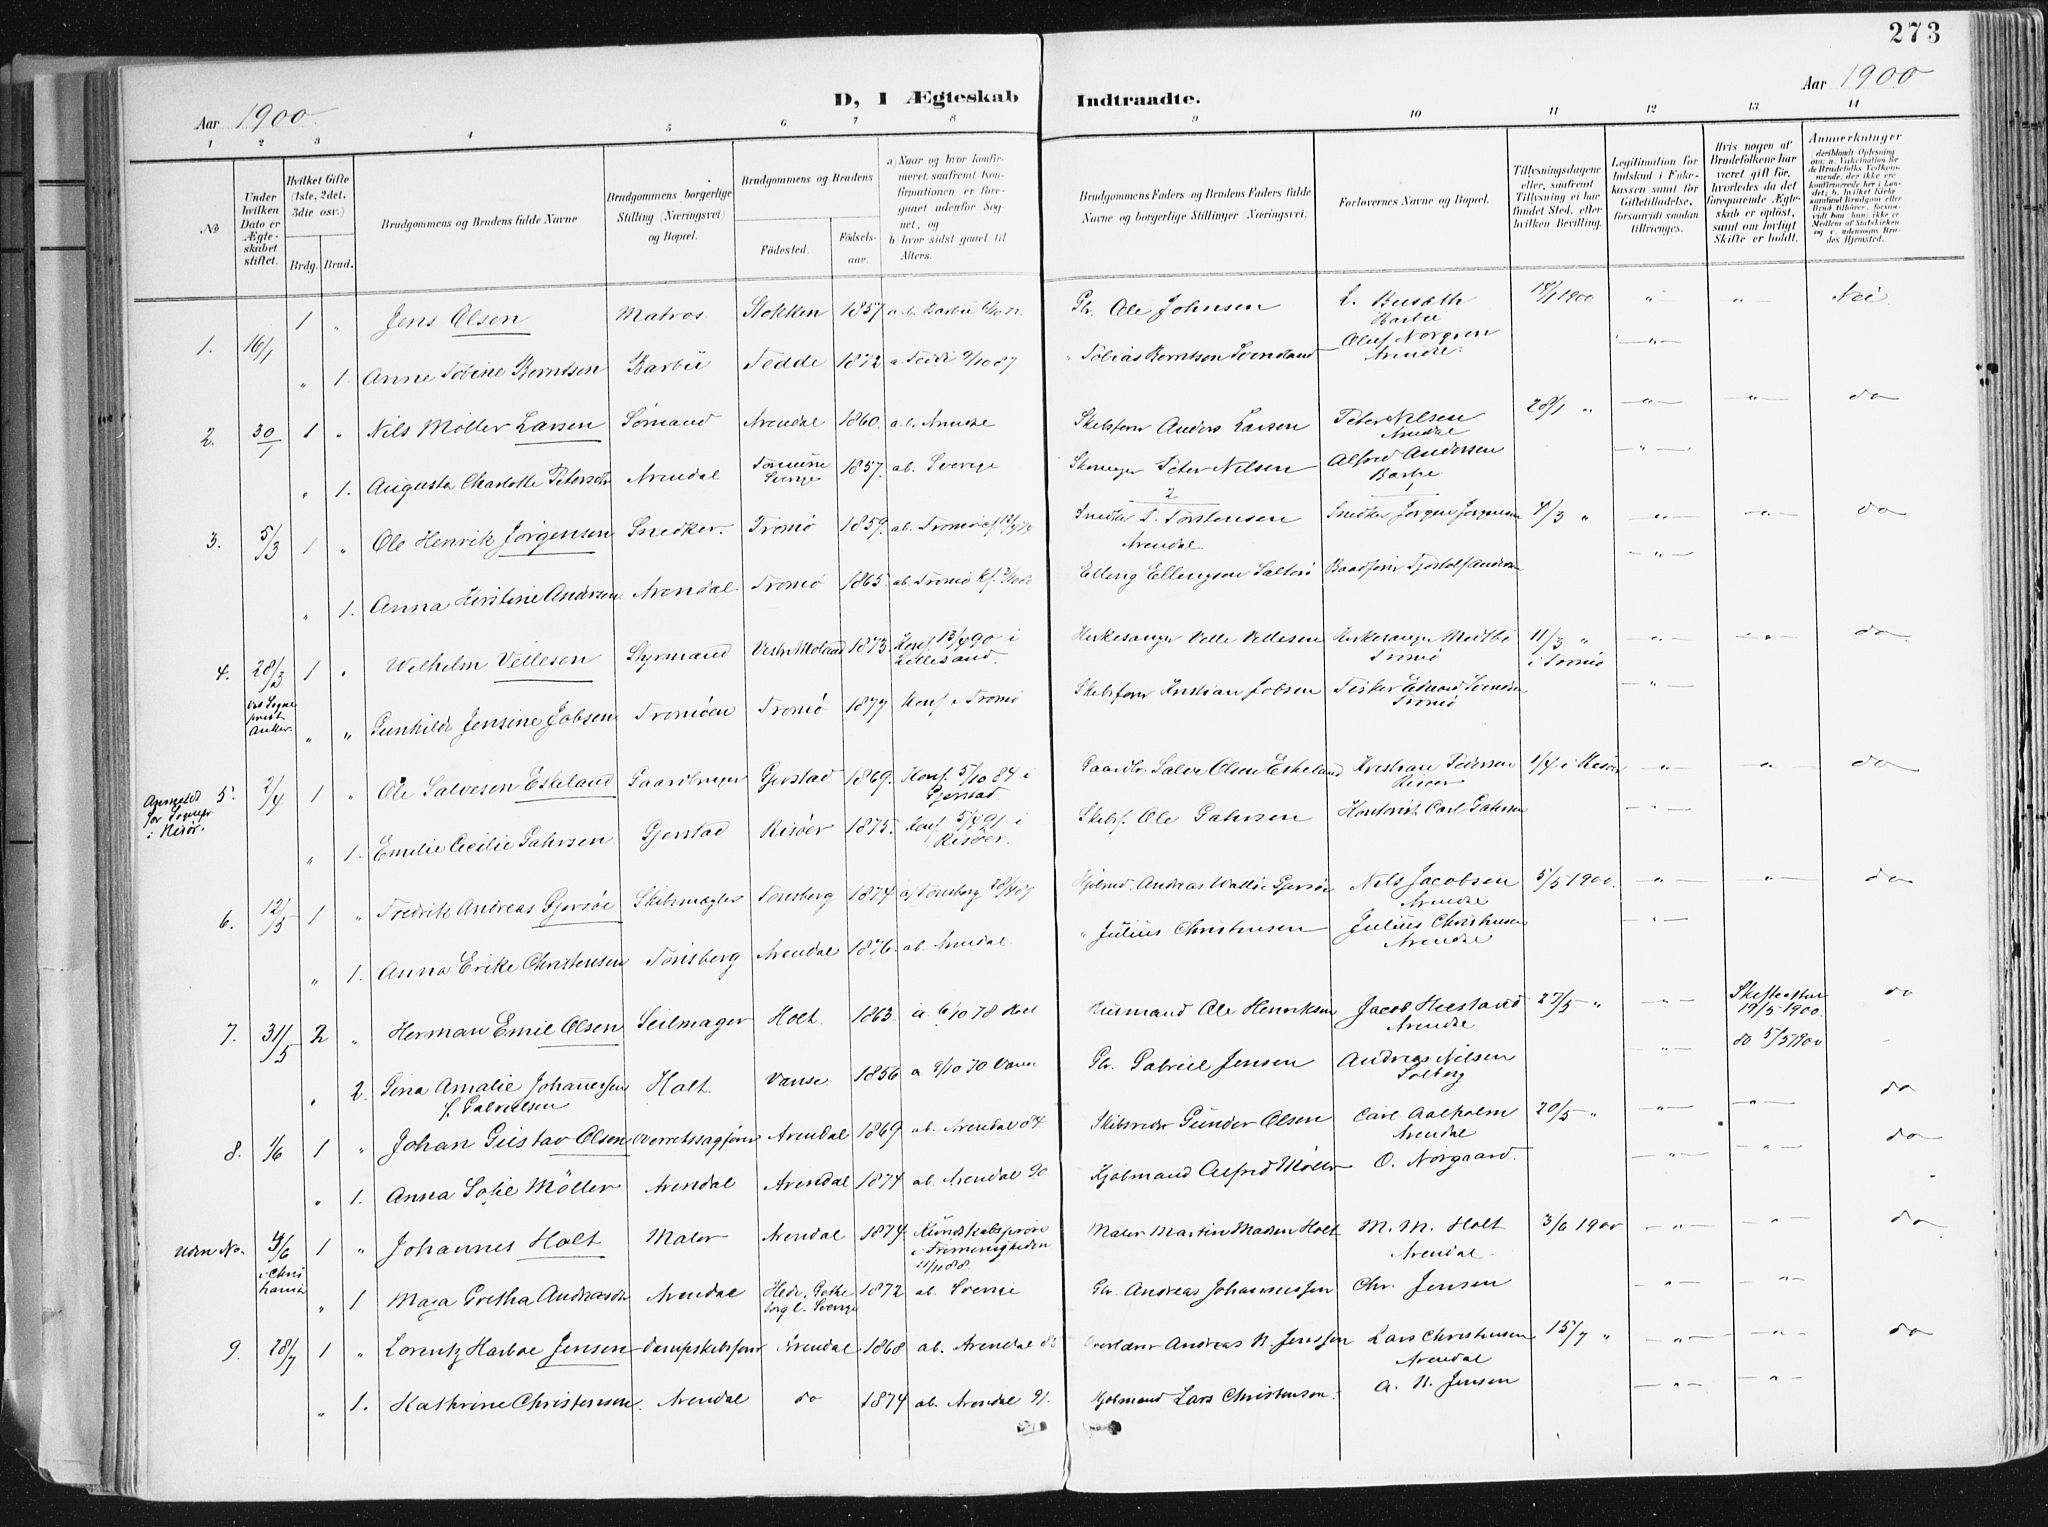 273
Aar 1900
D, I Ægteskab Indtraadte.
Aar 1900
1 2 3 4 5 6 7 8 9 10 11 12 13 14
No
Under hvilken Dato er Ægteskabet stiftet.
Hvilket Gifte (1ste, 2det, 3die osv.)
Brdg. Brud.
Brudgommens og Brudens fulde Navne
Brudgommens borgerlige Stilling (Næringsvei) og Bopæl.
Brudgommens og Brudens
Fødested.
Fødselsaar.
a) Naar og hvor konfirmeret, saafremt Konfirmationen er foregaaet udenfor Sognet, og
b) hvor sidst gaaet til Alters.
Brudgommens Faders og Brudens Faders fulde Navne og borgerlige Stillinger (Næringsvei)
Forlovernes Navne og Bopæl.
Tillysningsdagene eller, saafremt Tillysning ei har fundet Sted, efter hvilken Bevilling.
Legitimation for Indskud i Enkekassen samt for Giftetilladelse, forsaavidt saadan tiltrænges.
Hvis nogen af Brudefolkene har været gift før, hvorledes da det foregaaende Ægteskab er opløst, samt om lovligt Skifte er holdt.
Anmerkninger
1. 16/1 1 " Jens Olsen Matros Stokken 1857 Gbr. Ole Johnsen L. Busæth Barbu 14/1 1900 " " Nei
" 1. Anne Tobine Berntsen Barbu Fedde 1872 Tobias Berntsen Svendsand Oluf Norgren Arendal "
2. 30/1 1 " Nils Møller Larsen Sømand Arendal 1860. ab. Arendal Skibsfører Anders Larsen Peter Nilsen Arendal 28/1 " " " do
" 1. Augusta Charlotte Petersdtr Arendal Sverige 1857. ab. Sverige Peter Nilsen Alfred Andersen Barbu "
3. 5/3 1 " Ole Henrik Jørgensen Snedker. Tromø 1859. Snedker T. Torstensen Arendal Snedker Jørgen Jørgensen 4/3 " " " do
" 1. Anna Kirstine Andersen Arendal. Tromø 1865. Elling Ellingsen Salterø "
4. 28/3 ved Sogneprest Anker. 1 " Wilhelm Vellesen Styrmand Vestre Moland 1873. Konf. 13/4 90 i Lillesand. Kirkesanger Velle Vellesen Kirkesanger Tromø 11/3 " i Tromø " " do
" " Gunhilde Jensine Jobsen Tromøen Tromø 1877 Konf. i Tromø Skibsfører Kristian Jobsen Fisker Edvard Svendsen Tromø "
Anmeldt for Sognepr i Risør. 5. 2/4 1 " Ole Salvesen Eskeland Gaardbruger Gjerstad 1869. Konf. 5/10 84 i Gjerstad. Gaardbr. Salve Olsen Eskeland Kristian Pedersen Risøer 1/4 i Risør " " do
" 1. Emilie Cecilie Gahrsen Gjerstad Risøer 1875. Konf. 5/4 91 i Risøer. Skibsf. Ole Gahrsen Kontorist Carl Gahrsen "
6. 12/5 1 " Fredrik Andreas Gjersøe Skibsmægler Tønsberg 1874 Andreas Wallöe Gjersøe Nils Jacobsen Arendal 5/5 1900. " " do
" 1. Anna Erike Christensen Tønsberg Arendal 1876. ab. Arendal. " Julius Christensen Julius Christensen Arendal "
7. 31/5 2 " Herman Emil Olsen Seilmager Holt. 1863. a. 6/10 78 Holt Husmand Ole Henriksen Jacob Heestand Arendal 27/5 " " Skifteattest 19/5 1900. do
" 2. Gina Amalie Johannessen f. Gabrielsen Holt. Vanse 1856 a 9/10 70 Vanse Gbr. Gabriel Jensen Andreas Nilsen Solberg " do 5/5 1900
8. 1/6 1 " Johan Gustav Olsen Overretssagfører Arendal 1869 ab. Arendal 84 Skibsreder Gunder Olsen Carl Aalholm Arendal 20/5 " " do
" 1. Anna Sofie Møller Arendal Arendal 1874 ab. Arendal 90 Kjøbmand Alfred Møller O. Norgaard. " " do
Uden No. 4/6 i Christiania 1 " Johannes Holt Maler Arendal 1874. Kundskabsprøve i Frimenigheden 11/11 88. Maler Martin Madsen Holt M. M. Holt Arendal. 3/6 1900 " " do
" 1 Maja Gretha Andreasdtr Arendal Sverige 1872 ab. Sverige Gbr. Andreas Johannessen Chr. Jensen " "
9. 28/7 1 " Lorentz Harboe Jensen Dampskibsfører Arendal 1868 ab. Arendal 83 Overlærer Andreas N. Jenssen Lars Christensen Arendal 15/7 " " " do
" 1. Kathrine Christensen. Arendal do 1874 ab. Arendal 91. Kjøbmand Lars Christensen. A. N. Jensen " "